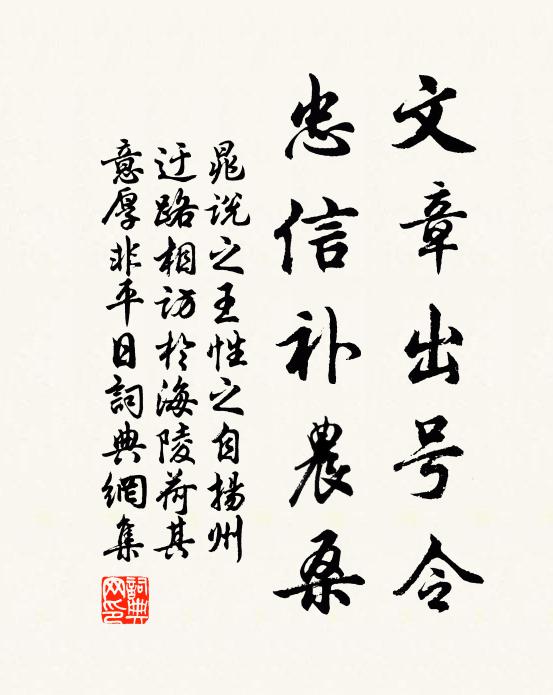 文章出号令
忠信补農桑
晁说之王性之自揚州
迂路相访於海陵荷其
意厚非平日詞典網集
詞典网印